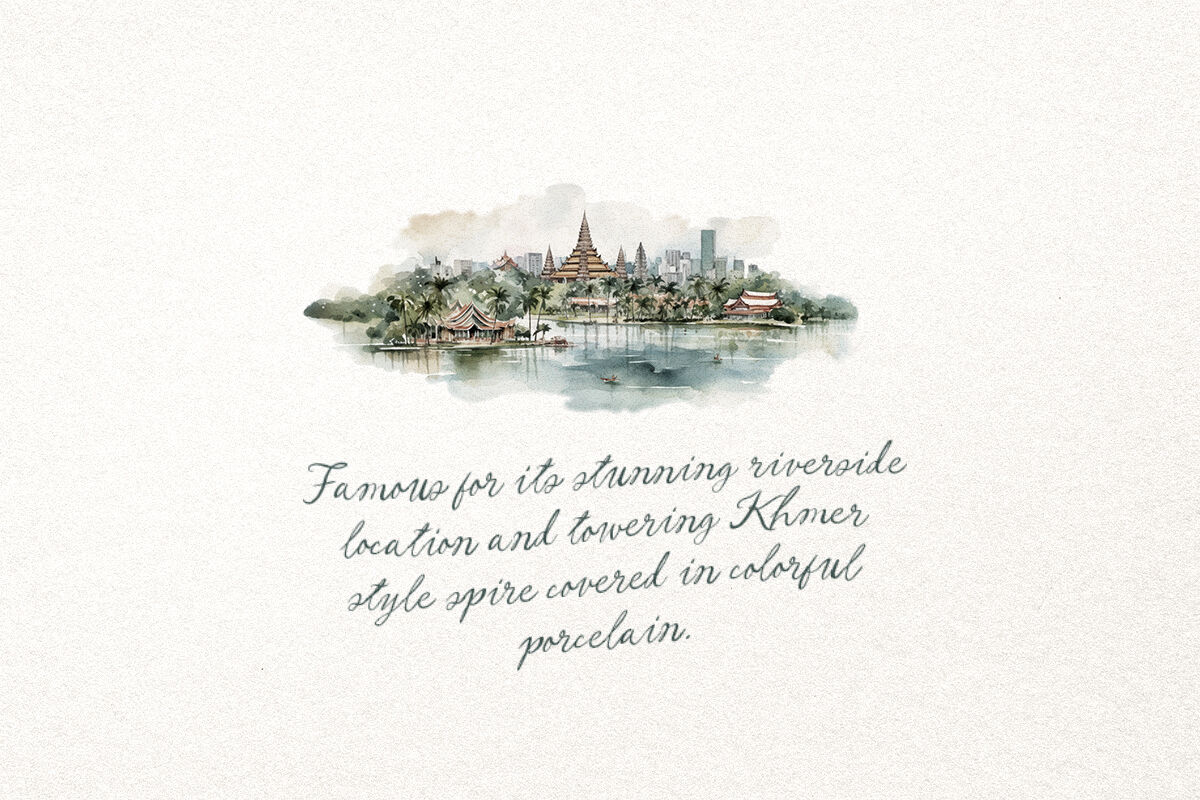 Famous for its stunning riverside
location and towering Khmer
style spire covered in colorful
porcelain.